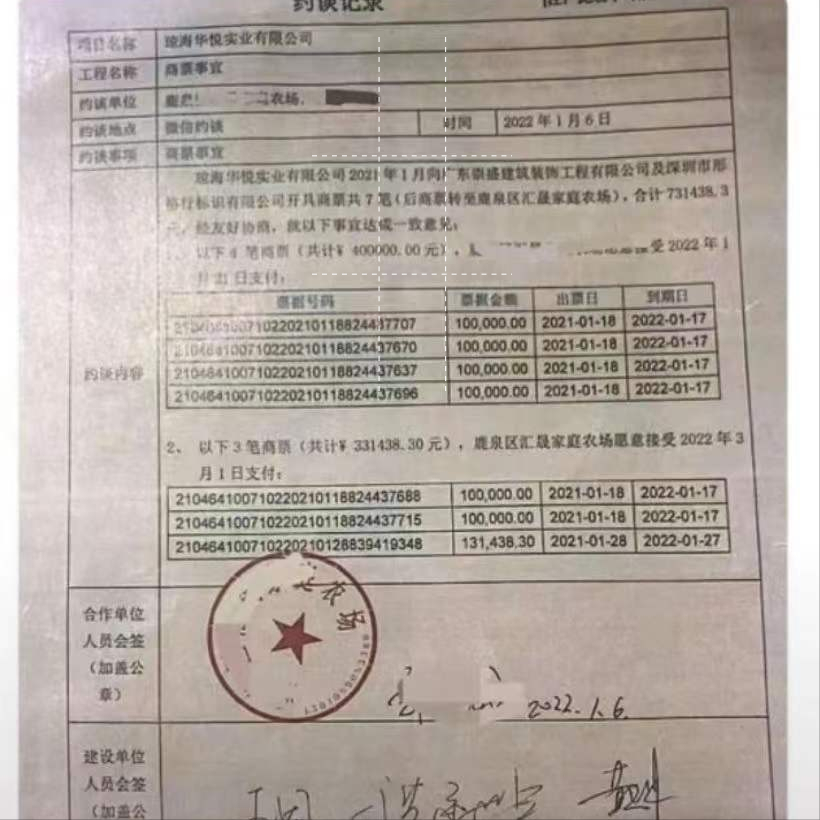 约谈记录
项目名称 琼海华悦实业有限公司
工程名称 商票事宜
约谈单位 农场,
约谈地点 微信约谈 时间 2022年1月6日
约谈事项 商票事宜
约谈内容
琼海华悦实业有限公司2021年1月向广东崇盛建筑装饰工程有限公司及深圳市彤
标识有限公司开具商票共7笔(后商票转至鹿泉区汇晟家庭农场),合计731438.3
元,经友好协商,就以下事宜达成一致意见:
以下4笔商票(共计¥ 400000.00元), 接受2022年1
月21日支付:
票据号码 票据金额 出票日 到期日
210464100710220210118824437707 100,000.00 2021-01-18 2022-01-17
210464100710220210118824437670 100,000.00 2021-01-18 2022-01-17
210464100710220210118824437637 100,000.00 2021-01-18 2022-01-17
210464100710220210118824437696 100,000.00 2021-01-18 2022-01-17
2、 以下3笔商票(共计¥ 331438.30元),鹿泉区汇晟家庭农场愿意接受2022年3
月1日支付:
210464100710220210118824437688 100,000.00 2021-01-18 2022-01-17
210464100710220210118824437715 100,000.00 2021-01-18 2022-01-17
210464100710220210128839419348 131,438.30 2021-01-28 2022-01-27
合作单位
人员会签
(加盖公
章)
农场
2022.1.6
建设单位
人员会签
(加盖公